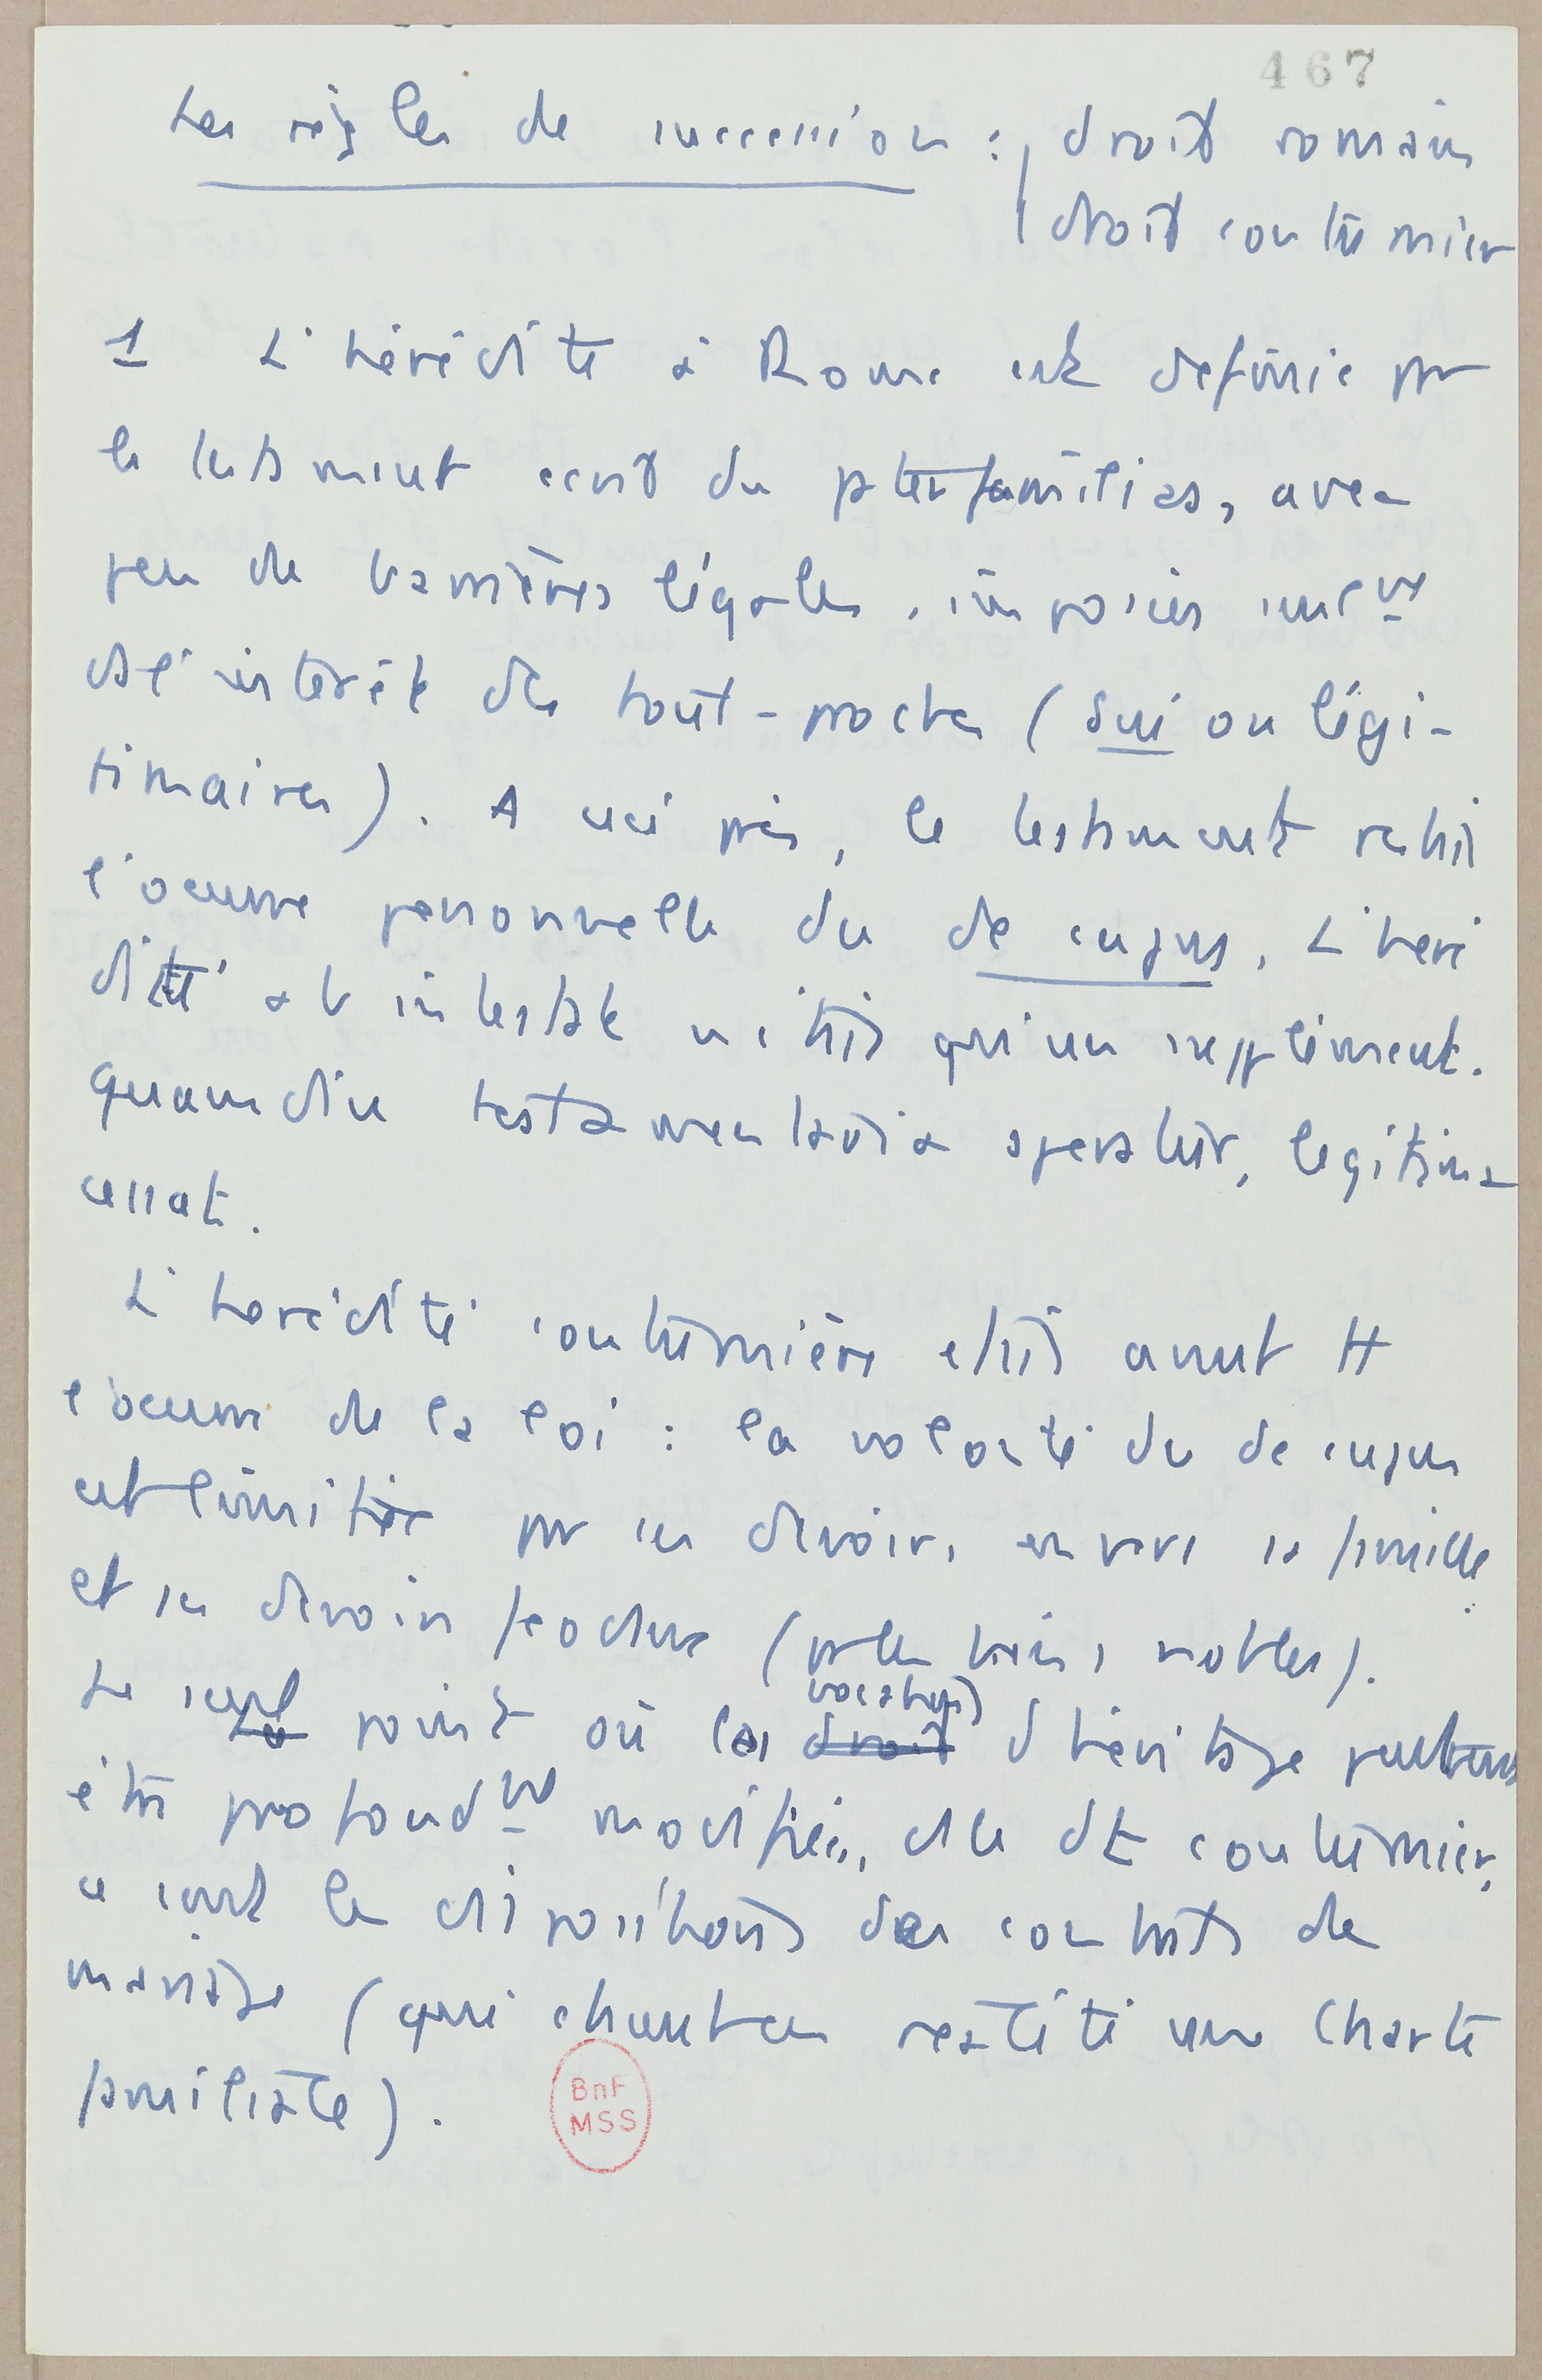 467
Les règles de succession : droit romain
droit coutumier
1 L'hérédité à Rome est definie par
le testament ecrit du paterfamilias, avec
peu de barrières légales, imposées seulemt
ds l'intérêt des tout-proches (sui ou légi-
timaires). A ceci près, le testament restait
l'oeuvre personnelle du de cujus. L'héré
dité ab intestat n'était qu'un supplément.
quamdiu testamentaria speratur, legitima
cessat.
L'hérédité coutumière était avant tt
l'oeuvre de la loi : la volonté du de cujus
est limitée par ses devoirs envers sa famille
et ses devoirs féodaux (pr les biens nobles).
vocations
Le seul point où les droit d'héritage peuvent
être profondmt modifiées, ds le dt coutumier,
ce sont les dispositions des contrats de
mariage (qui étaient en réalité une charte
familiale).
BnF
MSS